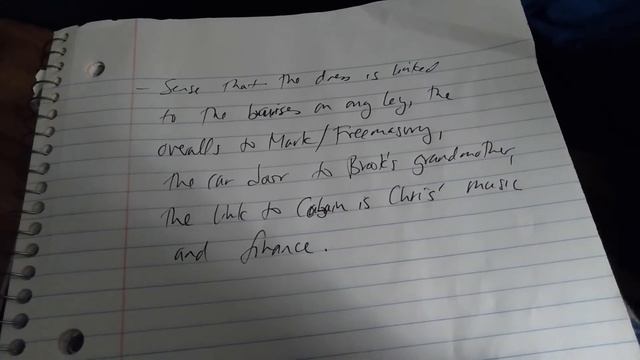 - Sense that the dress is linked
to the bruises on my leg, the
overalls to Mark/Freemasonry,
the car door to Brook's grandmother,
the link to Cobain is Chris' music
and finance.